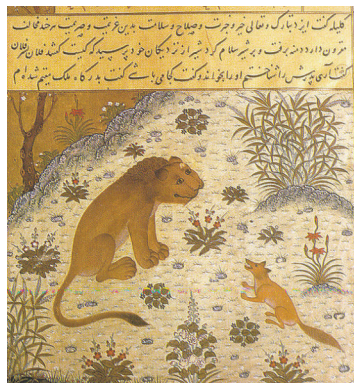 کلیله گفت ایزد تبارک و تعالی خیر و خیرت و صلاح و سلامت بدین عزیمت
مقرون داراد دمنه برفت و بر شیر سلام کرد شیر از نزدیکان خود پرسید که کیست گفتند فلان پسر فلان
گفت آری پدرش را شناختم او را بخواند و گفت کجا می باشی گفت بر درگاه ملک مقیم شده ام